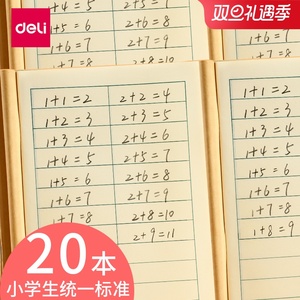 deli
双旦礼遇季
2+6=8
1+6=7 2+7=9
1+1=2 2+2=4
1+2=3 2+3=5
1+3=4 2+4=6
1+4=5 2+5=7
1+5=6 2+6=8
1+6=7 2+7=9
1+7=8 2+8=10
2+9=11
1+1=2
1+2=3
1+3=4
1+4=5
1+5=6
1+6=7
1+7=8
1+8=9
20本
小学生统一标准